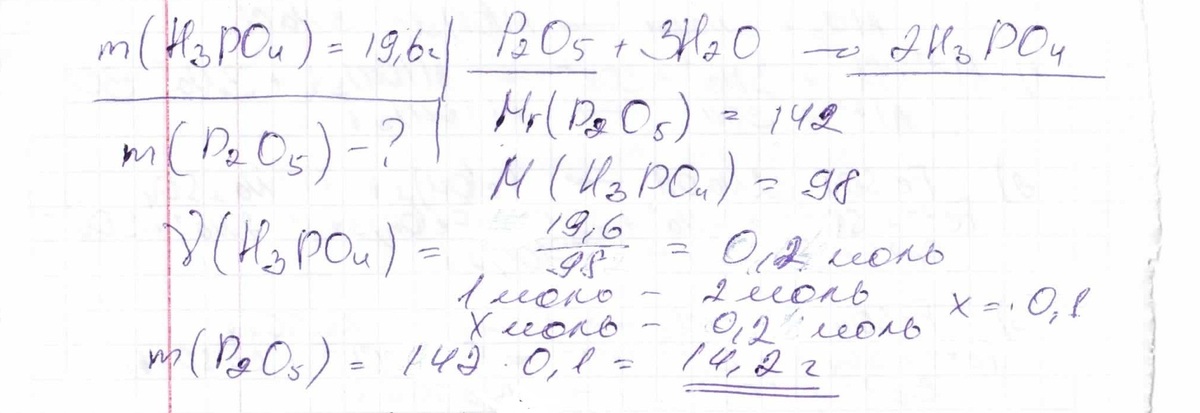 m(H₃PO₄) = 19,6г | P₂O₅ + 3H₂O → 2H₃PO₄
m(P₂O₅) - ? | Mr(P₂O₅) = 142
M(H₃PO₄) = 98
ν(H₃PO₄) = 19,6/98 = 0,2 моль
1 моль - 2 моль
x моль - 0,2 моль x = 0,1
m(P₂O₅) = 142 · 0,1 = 14,2 г